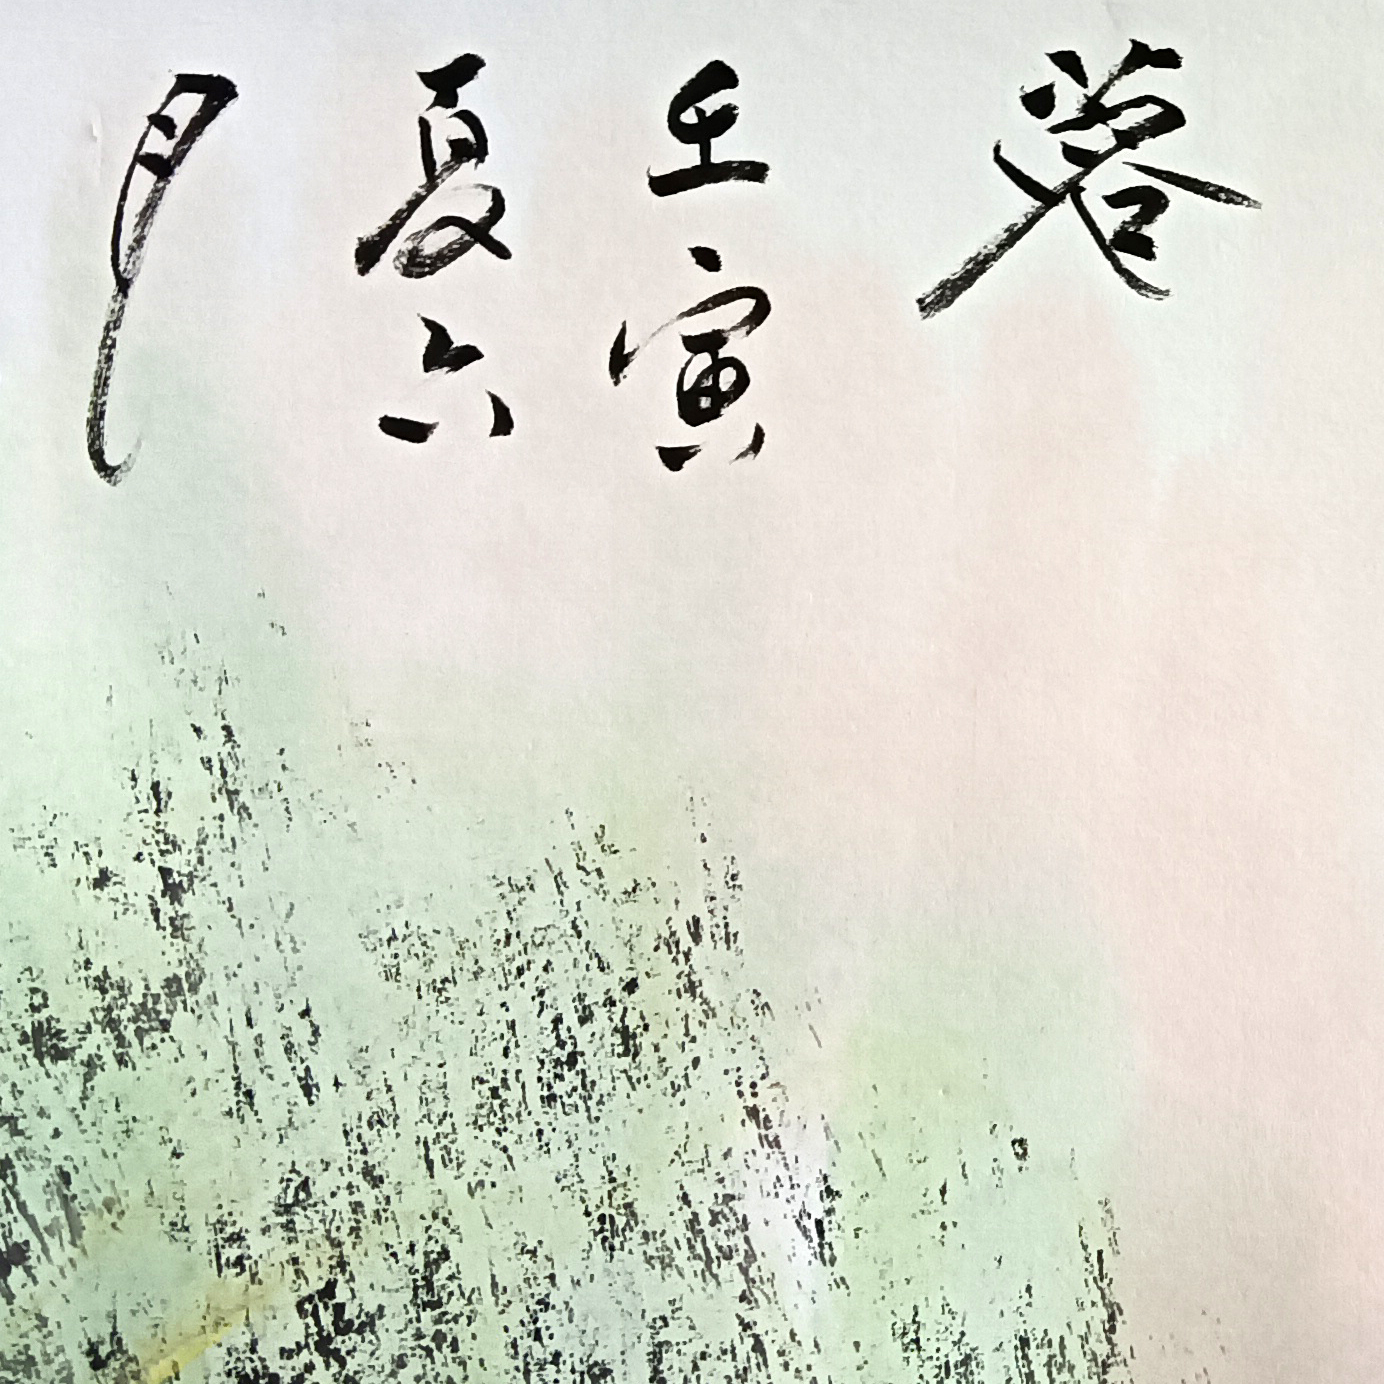 蓉
壬寅
夏六
月